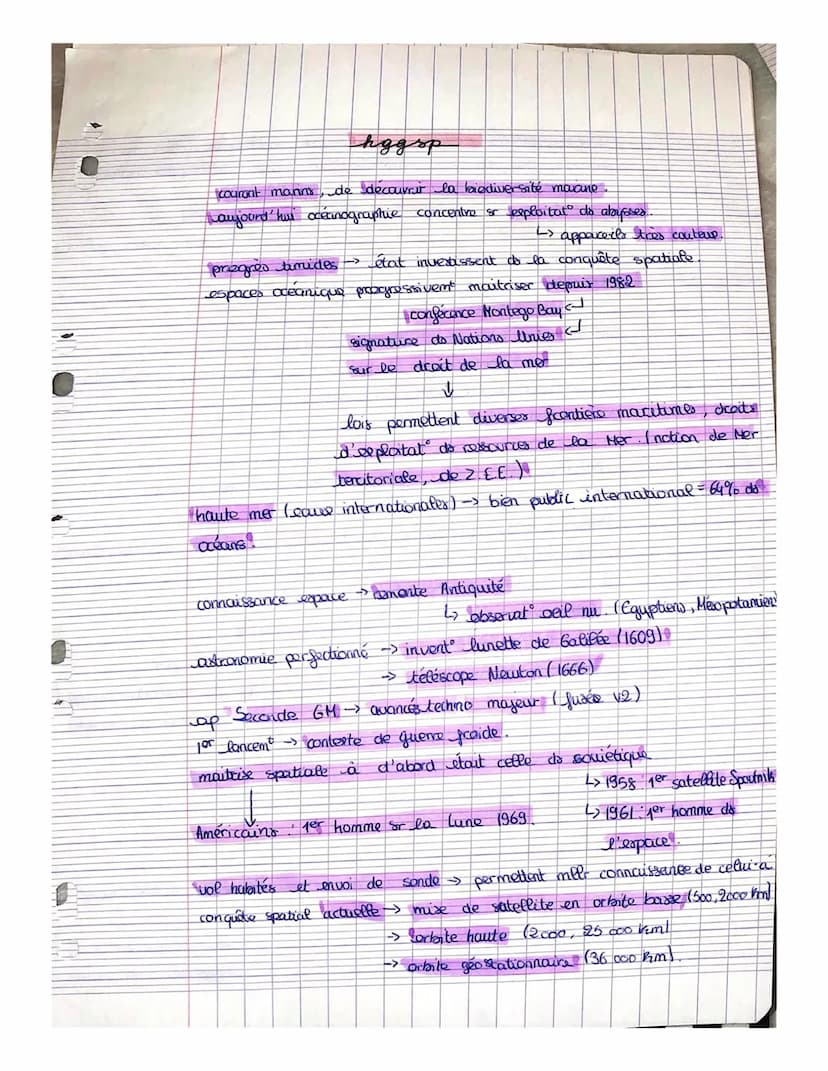 hggsp
courant marins, de découvrir la biodiversité marine.
aujourd'hui océanographie concentre sr exploitat° ds abysses.
↳ appareils très couteux.
progrès timides → état investissent ds la conquête spatiale.
espaces océanique progressivemt maitriser depuis 1982
conférence Montego Bay ↲
signature ds Nations Unies ↲
sur le droit de la mer
↓
lois permettent diverses frontière maritimes, droits
d'exploitat° ds ressources de la Mer. (notion de Mer
territoriale, de Z.E.E.)
haute mer (eaux internationales) → bien public international = 64% ds
océans.
connaissance espace → remonte Antiquité
↳ observat° oeil nu. (Egyptiens, Mésopotamien
astronomie perfectionné → invent° lunette de Galilée (1609)
→ téléscope Newton (1666)
ap Seconde GM → avancés techno majeur (fusée v2)
1er lancemt → contexte de guerre froide.
maitrise spatiale à d'abord était celle ds soviétique
↳ 1958 1er satellite Spoutnik
↓
↳ 1961 : 1er homme ds
Américains : 1er homme sr la lune 1969.
l'espace.
vol habités et envoi de sonde → permettent mllr connaissance de celui-ci
conquête spatial actuelle → mise de satellite en orbite basse (500, 2000 km)
→ orbite haute (2000, 25 000 km)
→ orbite géostationnaire (36 000 km).